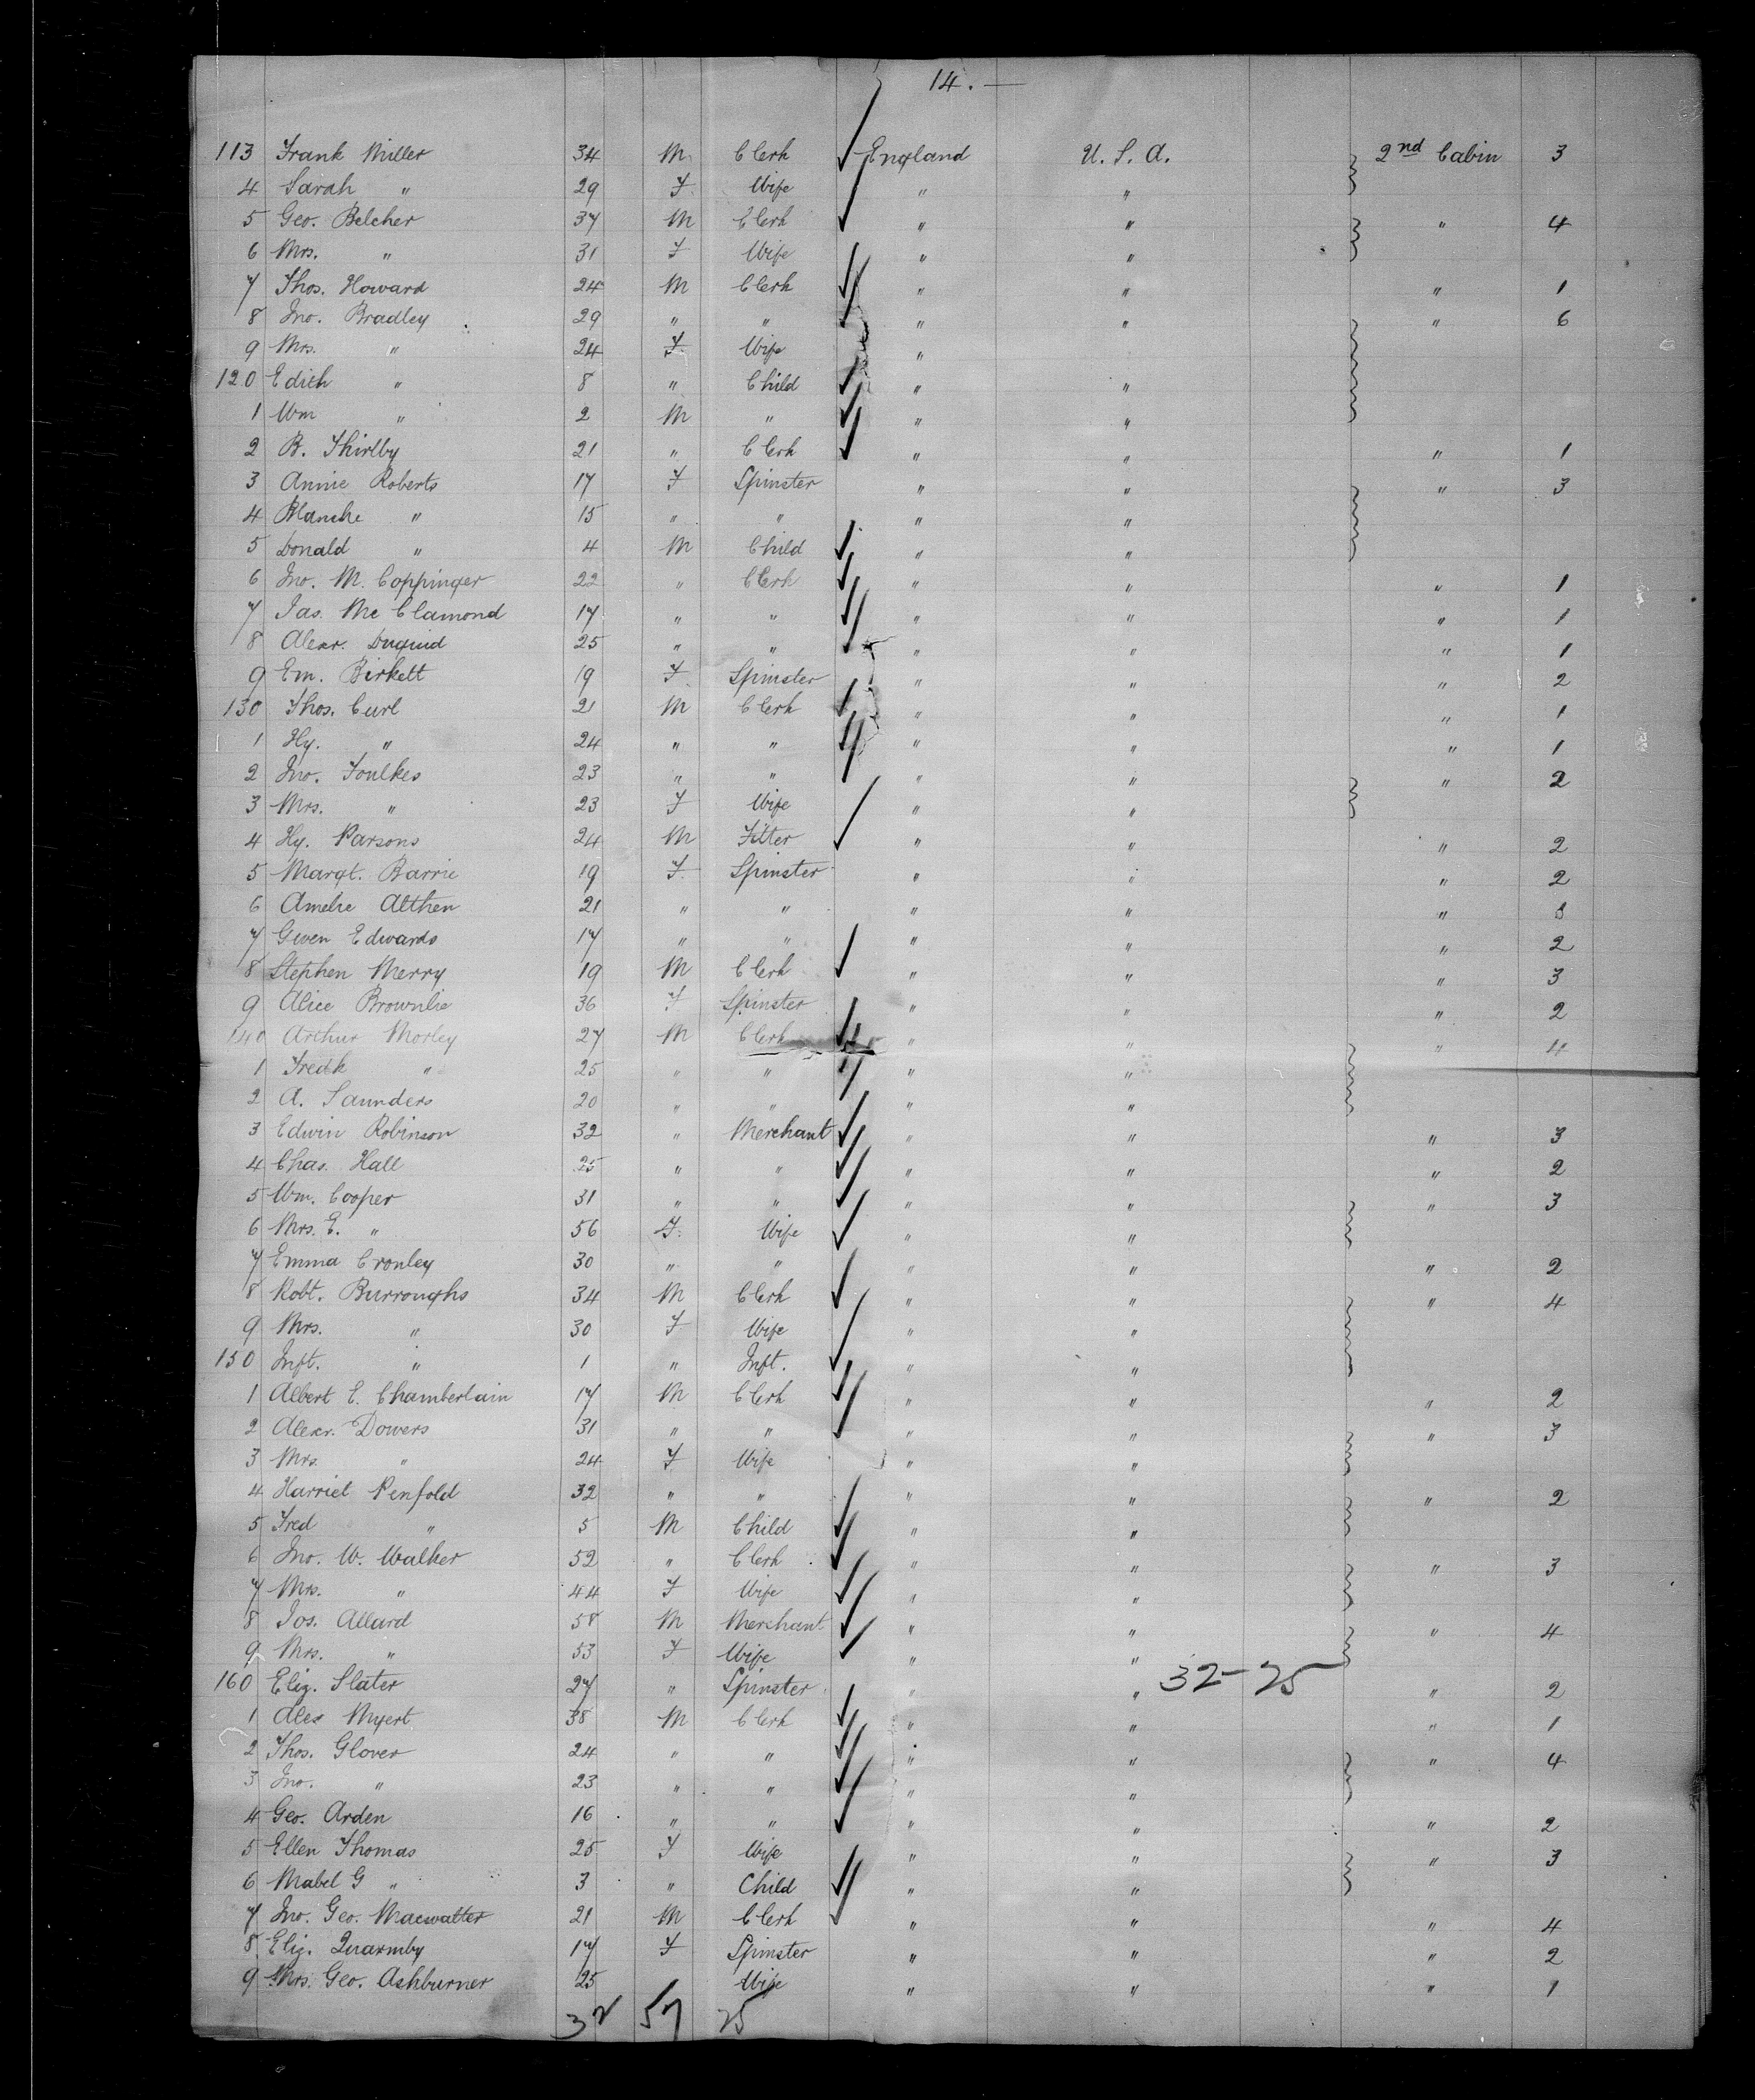 14. —
113 Frank Miller 34 M Clerk England U. S. A. 2nd Cabin 3
4 Sarah " 29 F Wife " "
5 Geo. Belcher 37 M Clerk " " " 4
6 Mrs. " 31 F Wife " "
7 Thos. Howard 24 M Clerk " " " 1
8 Jno. Bradley 29 " " " " " 6
9 Mrs. " 24 F Wife "
120 Edith " 8 " Child " "
1 Wm " 2 M " " "
2 B. Thirlby 21 " Clerk " " " 1
3 Annie Roberts 17 F Spinster " " " 3
4 Blanche " 15 " " " "
5 Donald " 4 M Child " "
6 Jno. M. Coppinger 22 " Clerk " " " 1
7 Jas. Mc Clamond 17 " " " " " 1
8 Alexr. Duguid 25 " " " " " 1
9 Em. Birkett 19 F Spinster " " " 2
130 Thos. Curl 21 M Clerk " " " 1
1 Hy. " 24 " " " " " 1
2 Jno. Foulkes 23 " " " " " 2
3 Mrs. " 23 F Wife " "
4 Hy. Parsons 24 M Fitter " " " 2
5 Margt. Barrie 19 F Spinster " " " 2
6 Amelie Althen 21 " " " " " 3
7 Gwen Edwards 17 " " " " " 2
8 Stephen Merry 19 M Clerk " " " 3
9 Alice Brownlie 36 F Spinster " " " 2
140 Arthur Morley 27 M Clerk " " " 4
1 Fredk " 25 " " " "
2 A. Saunders 20 " " " "
3 Edwin Robinson 32 " Merchant " " " 3
4 Chas. Hall 25 " " " " " 2
5 Wm. Cooper 31 " " " " " 3
6 Mrs. E. " 56 F. Wife " "
7 Emma Cronley 30 " " " " " 2
8 Robt. Burroughs 34 M Clerk " " " 4
9 Mrs. " 30 F Wife " "
150 Inft. " 1 " Inft. " "
1 Albert E. Chamberlain 17 M Clerk " " " 2
2 Alexr. Dowers 31 " " " " " 3
3 Mrs. " 24 F Wife " "
4 Harriet Penfold 32 " " " " " 2
5 Fred " 5 M Child " "
6 Jno. W. Walker 52 " Clerk " " " 3
7 Mrs. " 44 F Wife " "
8 Jos. Allard 58 M Merchant " " " 4
9 Mrs. " 53 F Wife " "
32-25
160 Eliz. Slater 27 " Spinster " " " 2
1 Alex Myert 38 M Clerk " " " 1
2 Thos. Glover 24 " " " " " 4
3 Jno. " 23 " " " "
4 Geo. Arden 16 " " " " " 2
5 Ellen Thomas 25 F Wife " " " 3
6 Mabel G " 3 " Child " "
7 Jno. Geo. Macwatter 21 M Clerk " " " 4
8 Eliz. Quarmby 17 F Spinster " " " 2
9 Mrs. Geo. Ashburner 25 Wife " " " 1
32 57 25